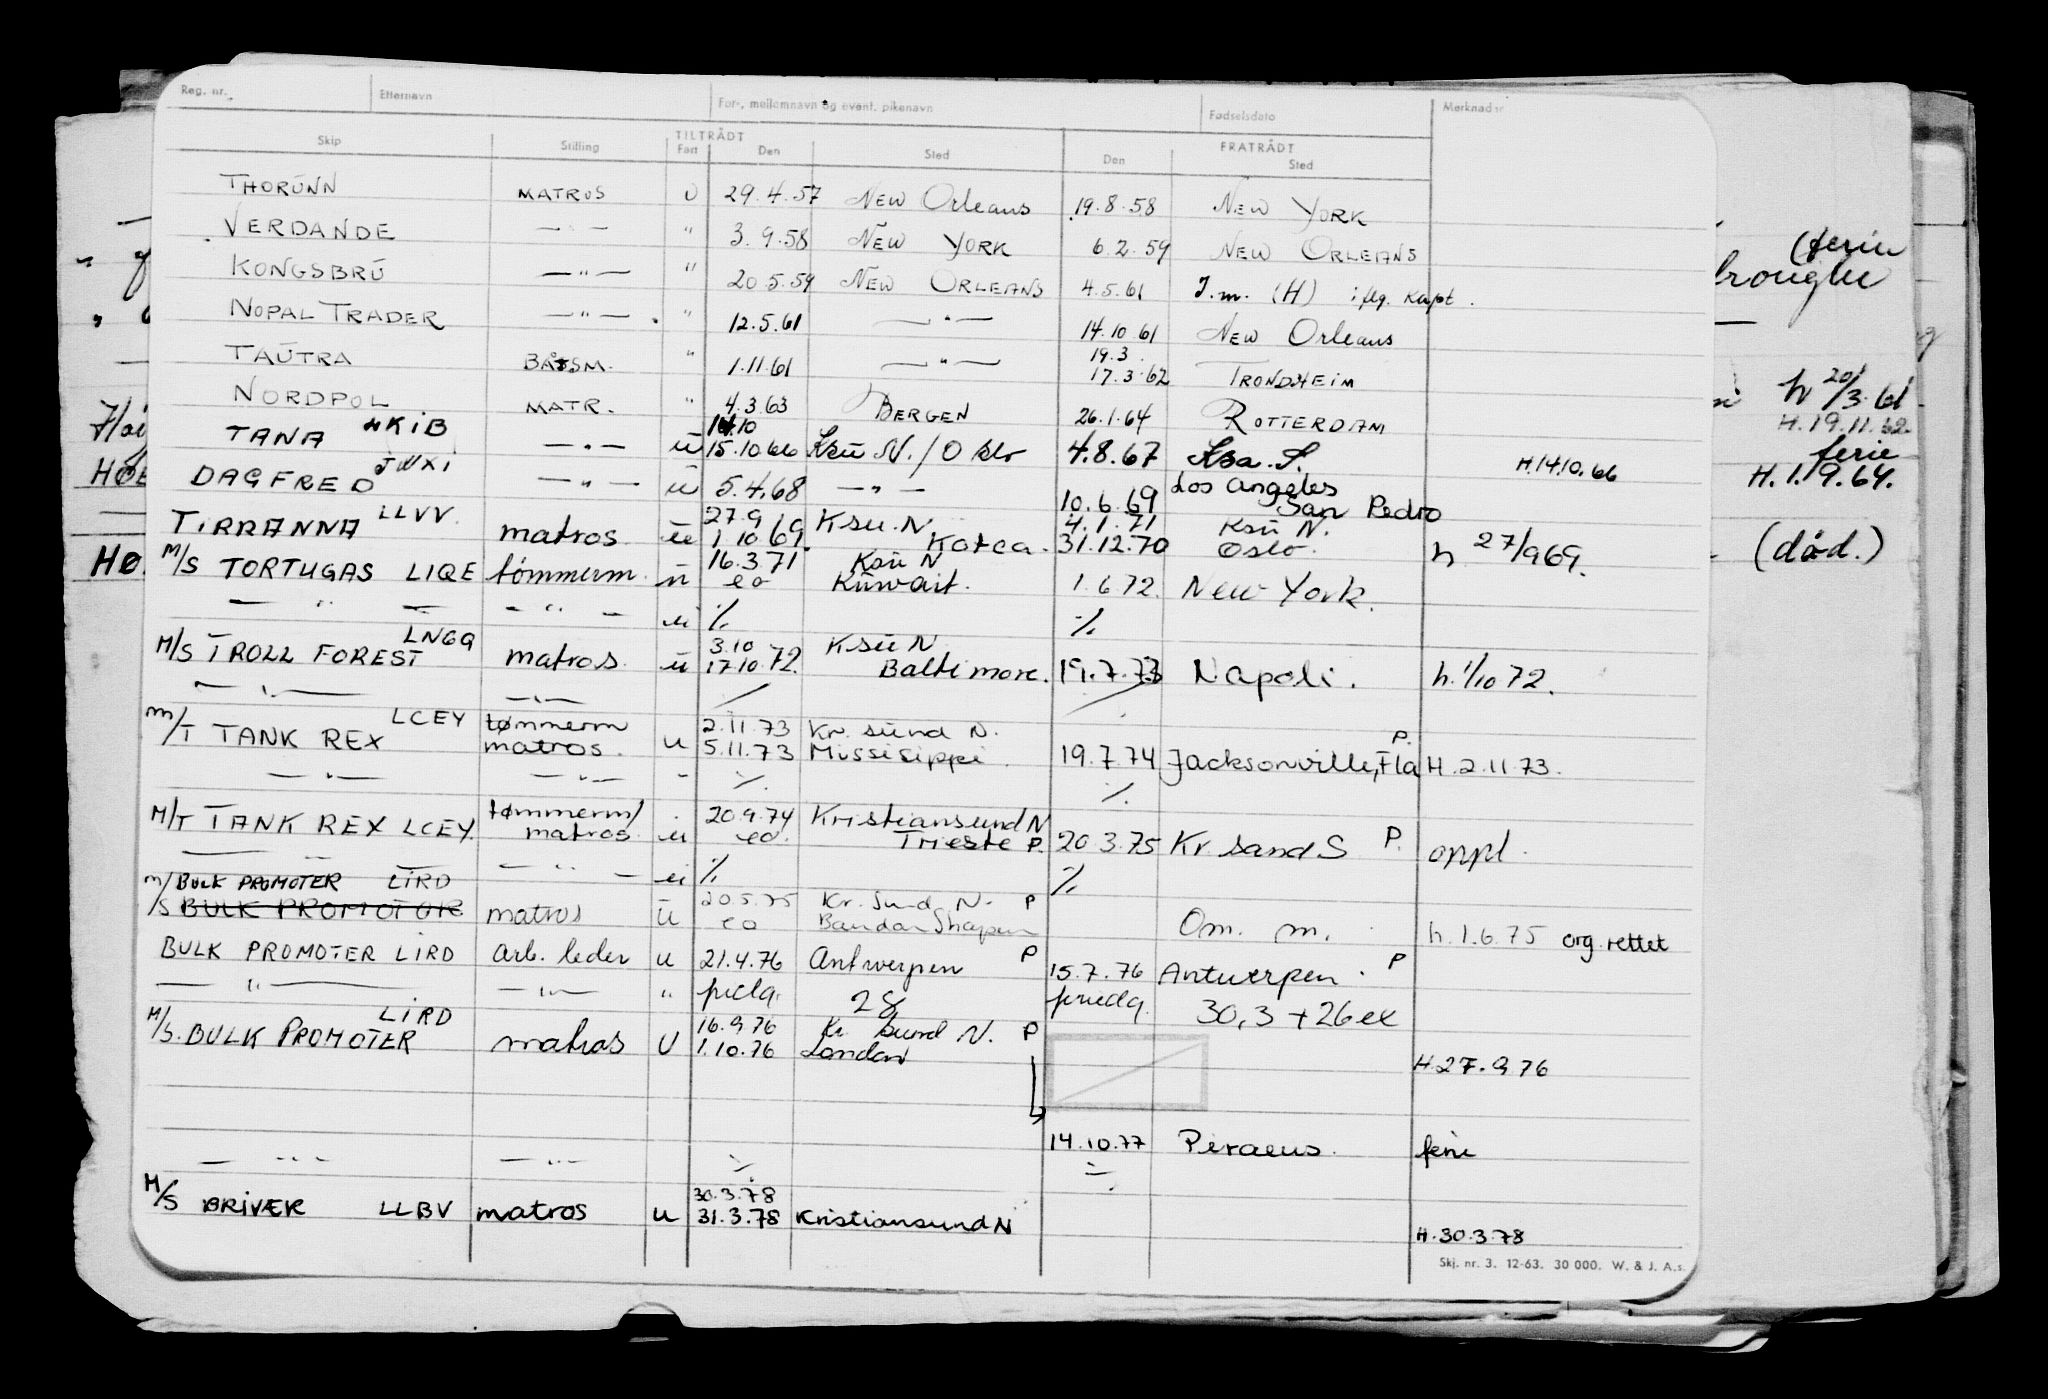 Reg. nr. Etternavn For-, mellomnavn og event. pikenavn Fødselsdato Merknader
TILTRÅDT FRATRÅDT
Skip Stilling Fart Den Sted Den Sted
THORUNN MATROS U 29.4.57 NEW Orleans 19.8.58 NEW YORK
VERDANDE — " — " 3.9.58 NEW YORK 6.2.59 NEW ORLEANS
KONGSBRU — " — " 20.5.59 NEW ORLEANS 4.5.61 J.m. (H) iflg. Kapt.
NOPAL TRADER — " — " 12.5.61 — " — 14.10 61 NEW Orleans
TAUTRA BÅTSM. " 1.11.61 — " — 19.3. 17.3.62 TRONDHEIM
NORDPOL MATR. " 4.3.63 BERGEN 26.1.64 ROTTERDAM
TANA HKIB — " — u 14.10 15.10 66 Ksu N. / Oslo 4.8.67 Ksa. S. H.14.10.66
DAGFRED JWXI — " — u 5.4.68 — " — 10.6.69 Los Angeles San Pedro
TIRRANNA LLVV matros u 27.9 1.10 69. Ksu. N. Korea. 4.1.71 31.12.70 Ksu N. Oslo. h 27/9 69.
M/S TORTUGAS LIQE tømmerm. u 16.3.71 eo Ksu N Kuwait. 1.6 72. New York.
— " — — " — u % %
M/S TROLL FOREST LNGQ matros. u 3.10 17.10.72. Ksu N Baltimore. 19.7.73 Napoli. h. 1/10 72.
— " — — " —
M/T TANK REX LCEY tømmerm matros. u 2.11.73 5.11.73 Kr. sund N. Missisippi. 19.7.74 Jacksonville, Fla P. H. 2.11.73.
— " — — " — - % %
M/T TANK REX LCEY. tømmerm/ matros u 20.9.74 eo. Kristiansund N Trieste P. 20.3.75 Kr. sand S P. oppl.
— " — — " — u % %
M/S BULK PROMOTER LIRD
BULK PROMOTOR matros u 20.5.75 eo Kr. Sund N. P Bandar Shapur Om. m. h. 1.6.75 org. rettet
BULK PROMOTER LIRD arb. leder u 21.4.76 Antwerpen P 15.7.76 Antwerpen. P
— " — — " — " 28 30,3 + 26 ex
M/S. BULK PROMOTER LIRD matros U 16.9.76 1.10.76 Kr. Sund N. P London H.27.9.76
14.10.77 Piraeus. ferie
— " — — " — % %
M/S BRIVÆR LLBV matros u 30.3.78 31.3.78 Kristiansund N H.30.3.78
Skj. nr. 3. 12-63. 30 000. W. & J. A.s.
(ferie
h 20/3.61
H.19.11.62
ferie
H.1.9.64.
(død.)